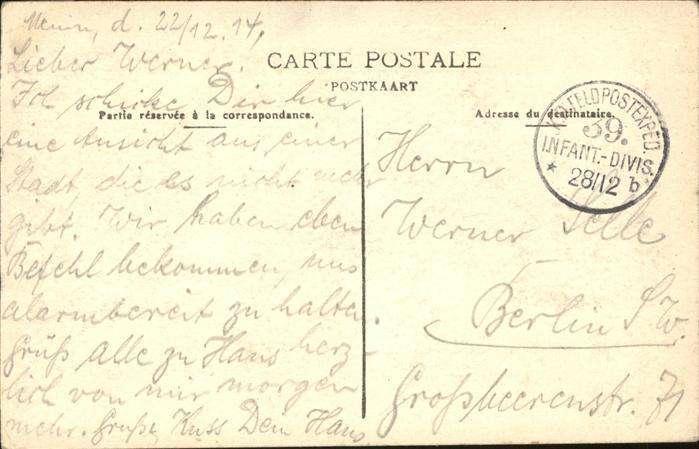 Menin, d. 22/12.14.
Lieber Werner.
Ich schicke Dir hier
eine Ansicht aus einer
Stadt, die es nicht mehr
gibt. Wir haben eben
Befehl bekommen, uns
alarmbereit zu halten.
Grüß alle zu Haus herz-
lich von mir morgen
mehr. Gruß Kuss Dein Hans
CARTE POSTALE
POSTKAART
Partie réservée à la correspondance.
Adresse du destinataire.
FELDPOSTEXPED.
39.
INFANT.-DIVIS.
* 28/12 b
Herrn
Werner Selle
Berlin S.W.
Großbeerenstr. 71